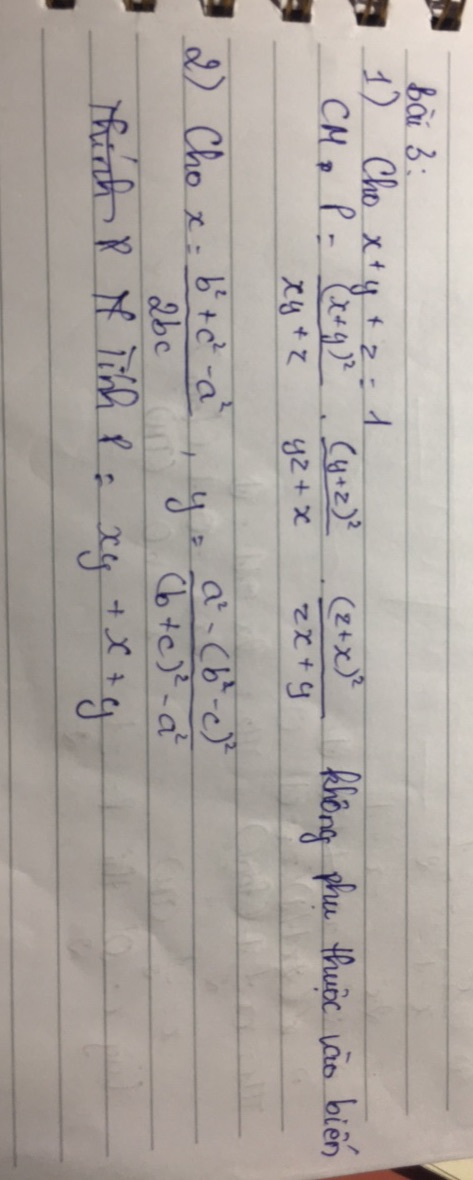 bài 3:
1) Cho x + y + z = 1
CM P = (x+y)²/(xy+z) . (y+z)²/(yz+x) . (z+x)²/(zx+y) không phụ thuộc vào biến
2) Cho x = (b²+c²-a²)/(2bc) , y = (a²-(b²-c)²)/((b+c)²-a²)
Tính P = xy + x + y